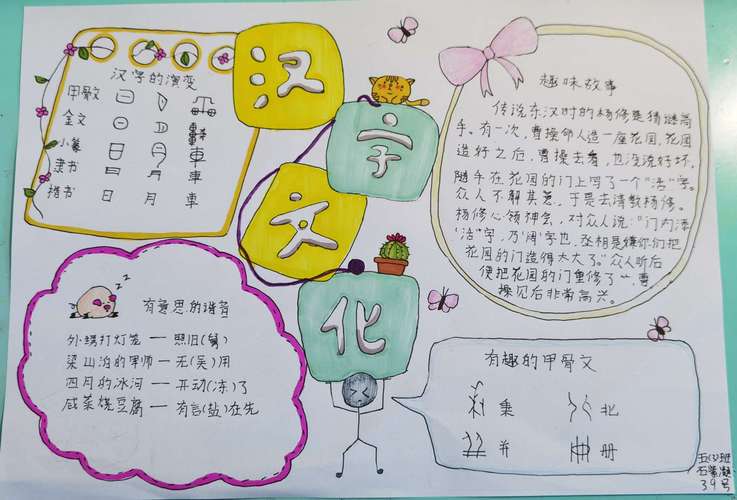 汉字文化
汉字的演变
甲骨文
金文
小篆
隶书 日 月 車
楷书 日 月 車
趣味故事
传说东汉时的杨修是猜谜高
手。有一次，曹操命人造一座花园，花园
造好之后，曹操去看，也没说好坏，
随手在花园的门上写了一个“活”字。
众人不解其意，于是去请教杨修。
杨修心领神会，对众人说：“门内添
‘活’字，乃‘阔’字也，丞相是嫌你们把
花园的门造得太大了。”众人听后
便把花园的门重修了一下，曹
操见后非常高兴。
zz
有意思的谐音
外甥打灯笼 — 照旧(舅)
梁山泊的军师 — 无(吴)用
四月的冰河 — 开动(冻)了
咸菜烧豆腐 — 有言(盐)在先
有趣的甲骨文
乘 北
并 册
班
39号